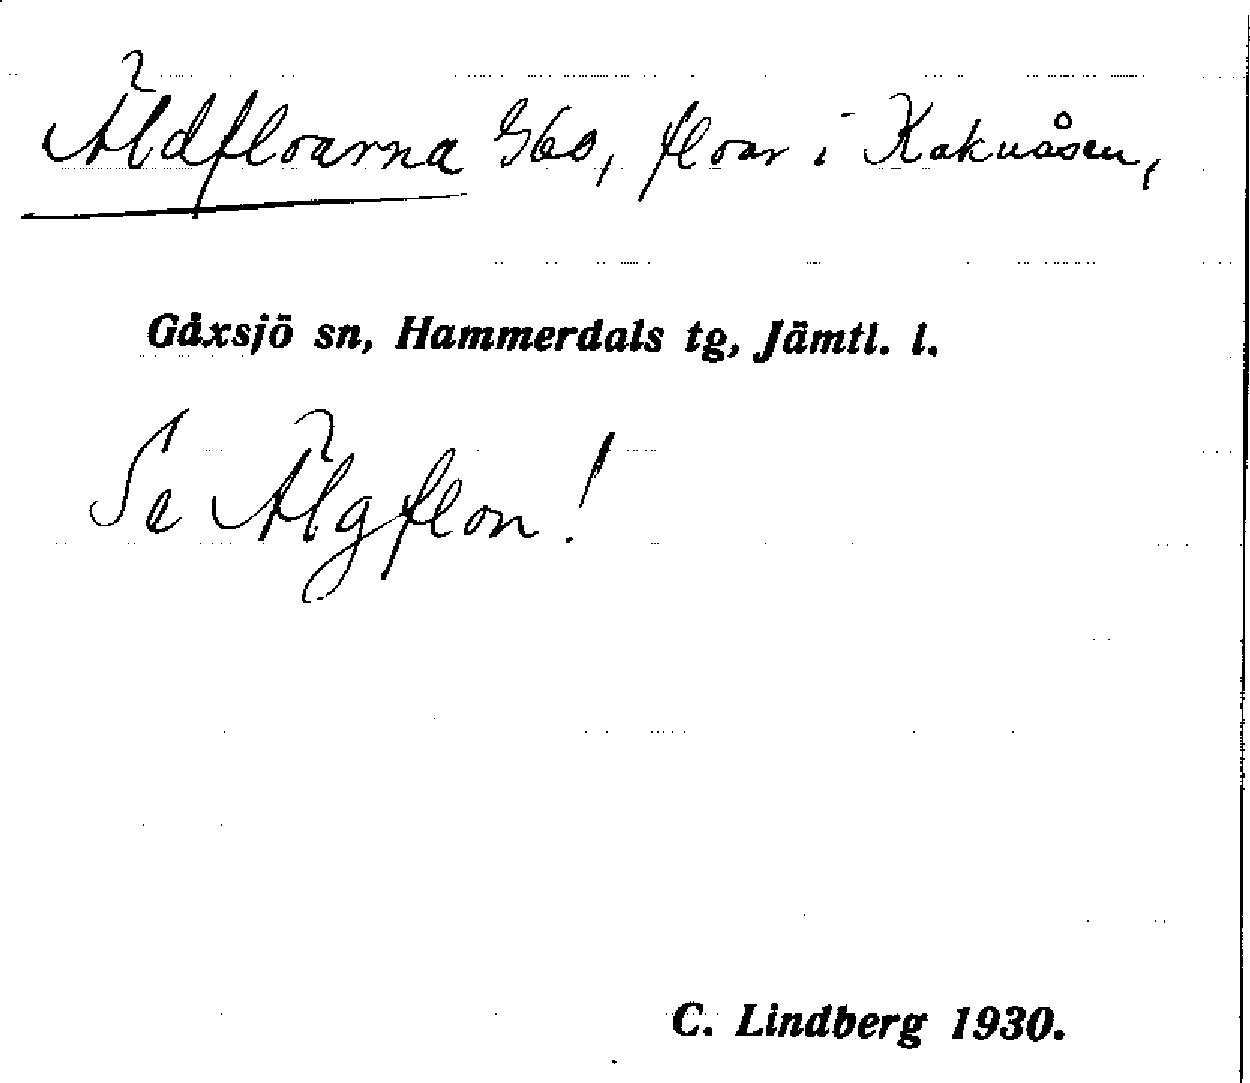 Äldfloarna Gbo, floar i Kakuåsen,
Gåxsjö sn, Hammerdals tg, Jämtl. l.
Se Älgflon!
C. Lindberg 1930.